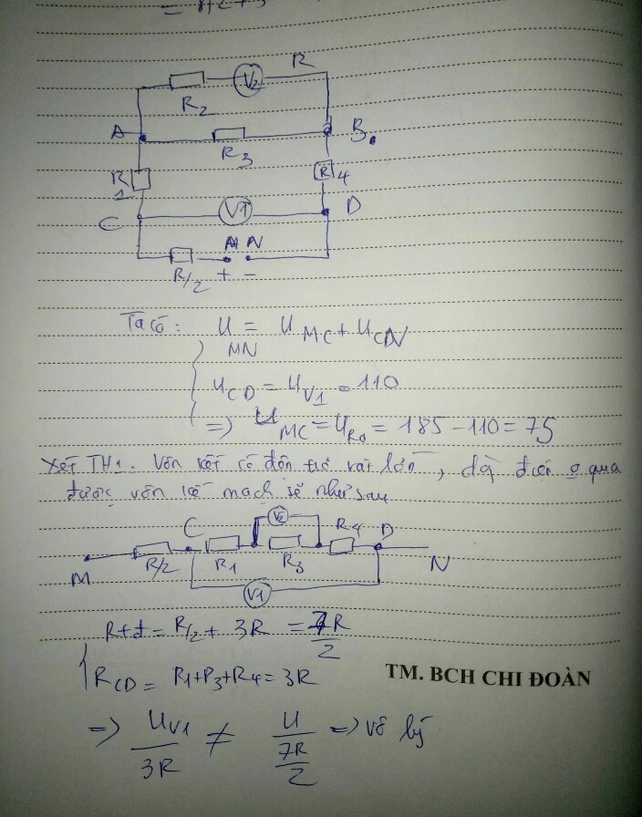 R
V2
R2
A
B.
R3
R
1
R 4
C
V1
D
M N
R/2 + -
Ta có: U = U MC + U CDN
MN
U CD = U V1 = 110
=> U MC = U R0 = 185 - 110 = 75
Xét TH1. Vôn kế có điện trở rất lớn, dòng qua
được vôn kế mạch sẽ như sau
V2
C
R4
D
M
R/2
R1
R3
N
V1
Rtđ = R/2 + 3R = 7R
2
R CD = R1 + R3 + R4 = 3R
TM. BCH CHI ĐOÀN
=> U V1 ≠ U => vô lý
3R
7R
2